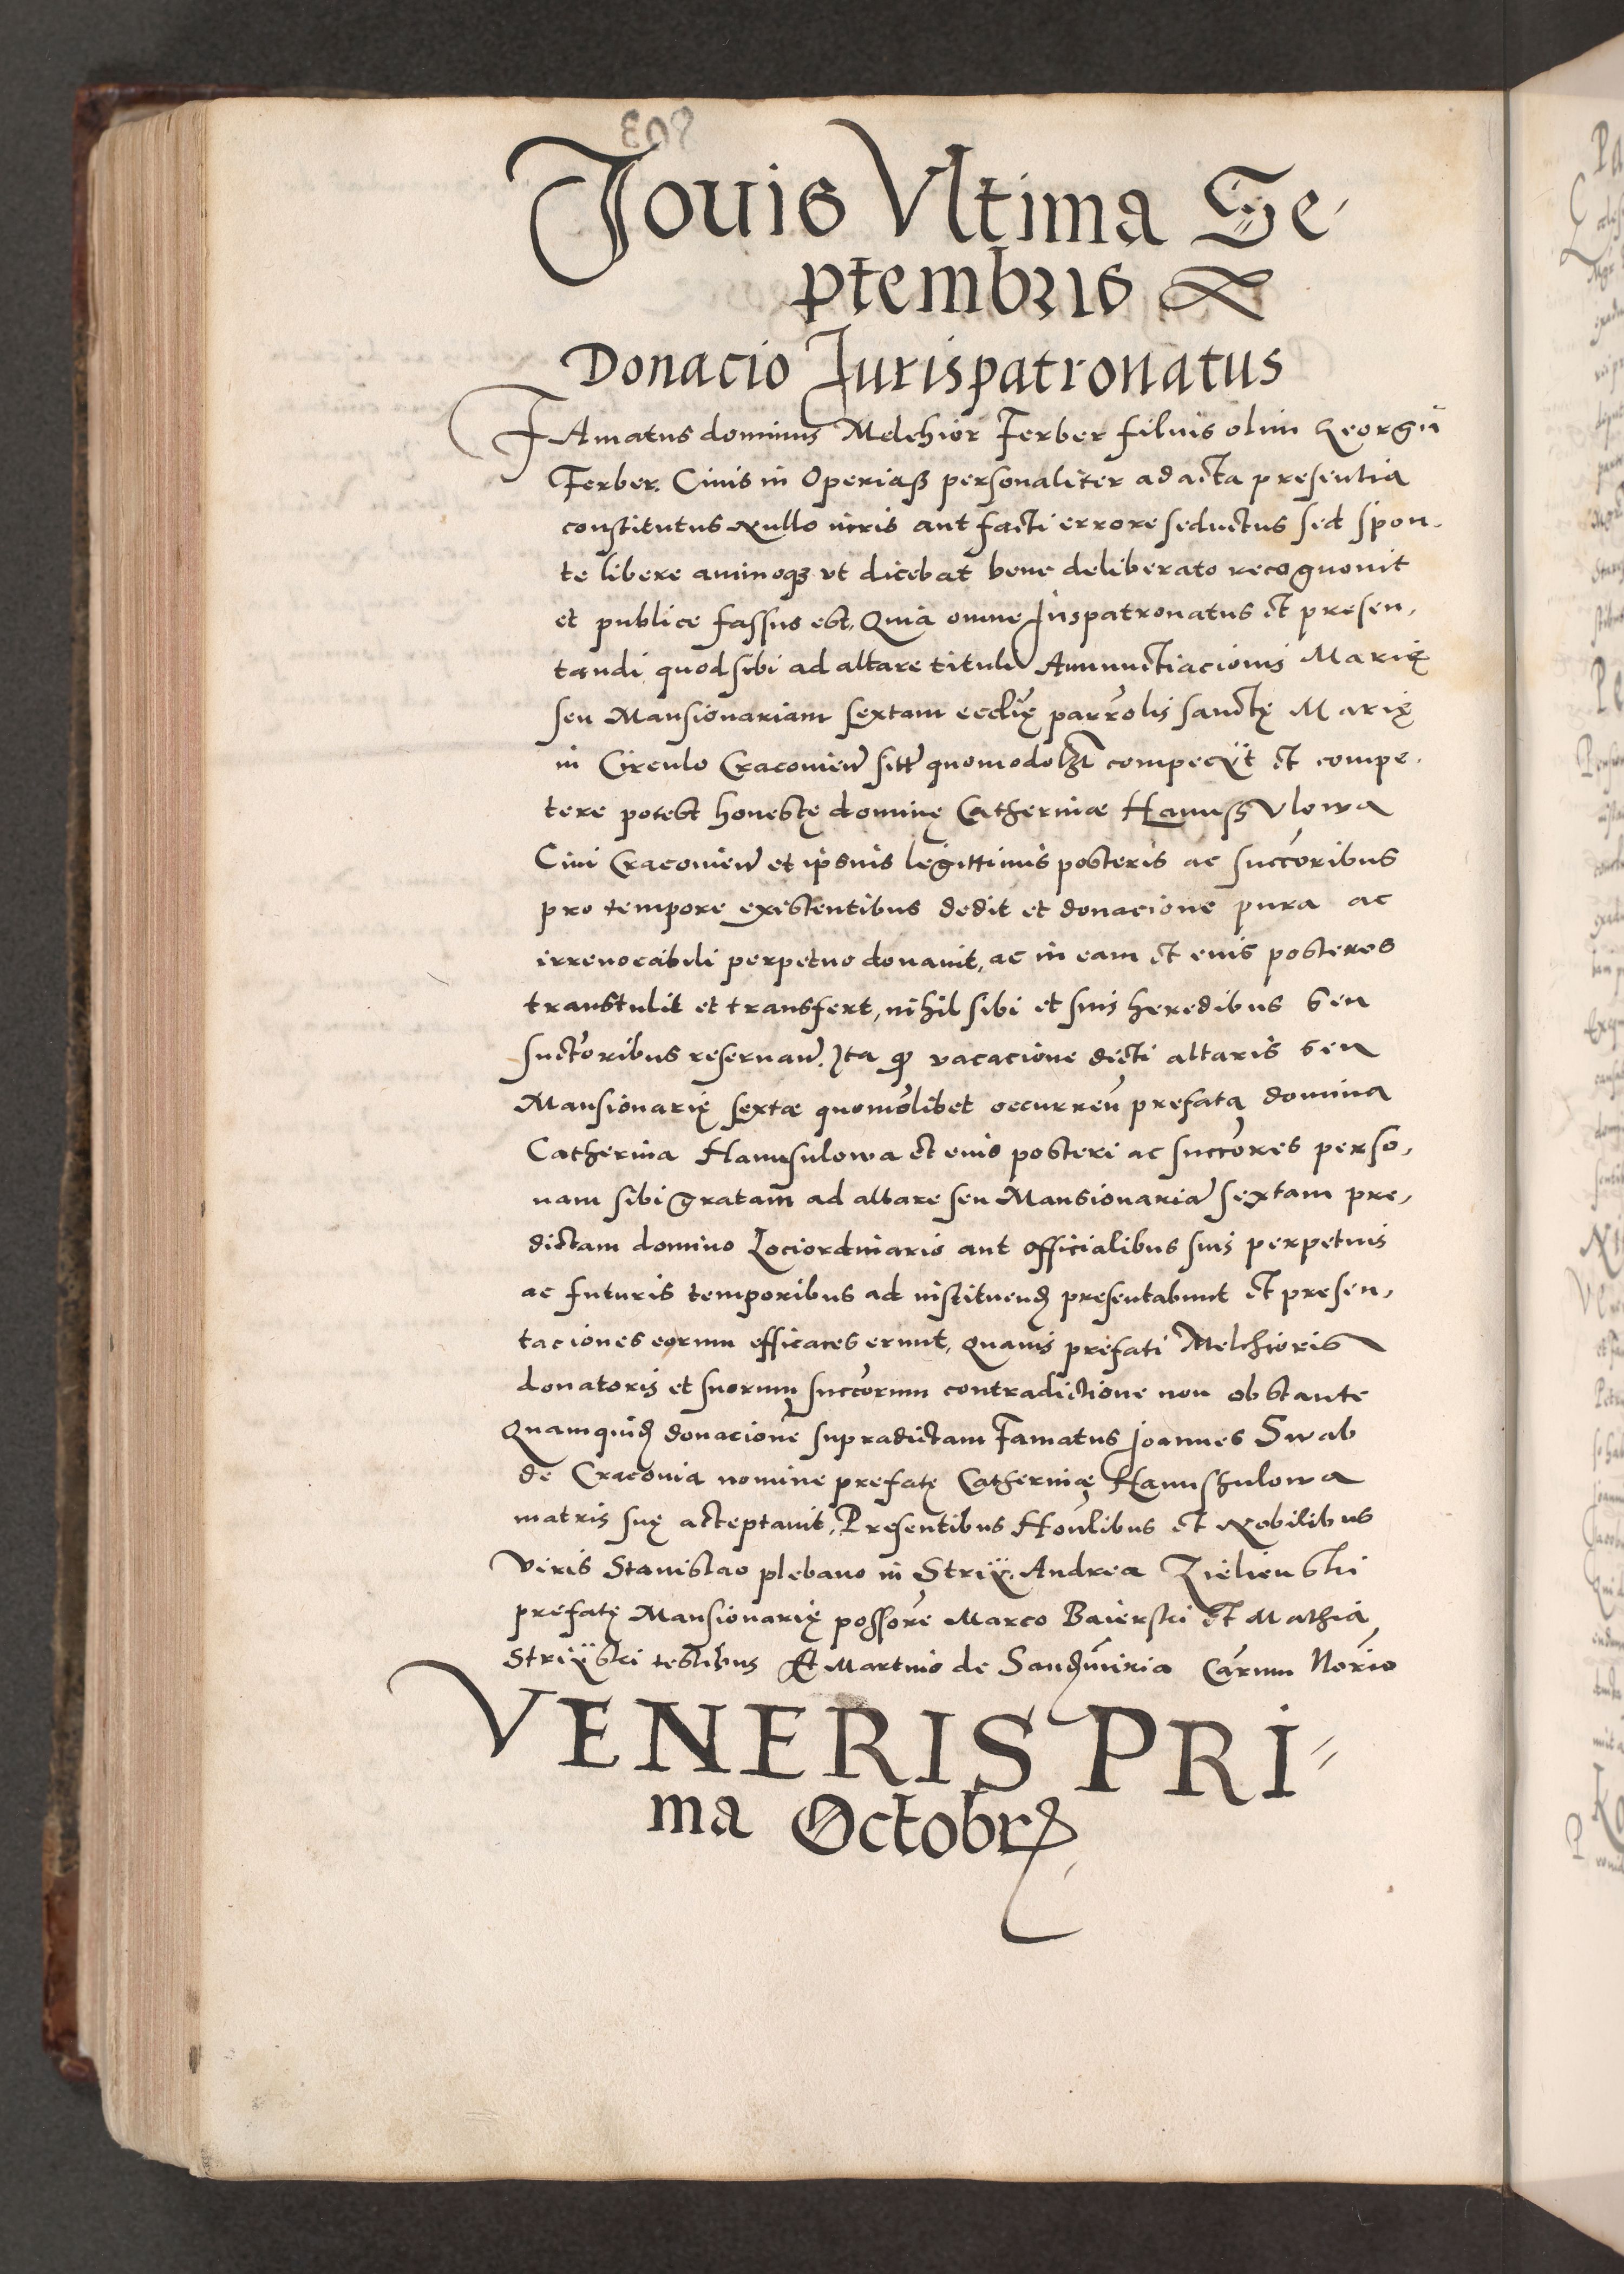 Jouis Vltima Se-
ptembris
Donacio Jurispatronatus
FAmatus dominus Melchior Ferber filius olim Georgii
Ferber. Ciuis in Operiasß personaliter ad acta presentia
constitutus Nullo iuris aut facti errore seductus sed spon-
te libere animoqȝ vt dicebat bene deliberato recognouit
et publice fassus est, Quia omne Juspatronatus et presen-
tandi quod sibi ad altare tituli Annunctiacionis Marię
seu Mansionariam sextam ecclię parrolis sanctę Marię
in Circulo Cracouien sitt quomodolȝt competÿt et compe-
tere potest honestę dominę Catherinæ Hanussulowa
Ciui Cracouien et ipsius legittimis posteris ac succoribus
pro tempore existentibus dedit et donacione pura ac
irreuocabili perpetuo donauit, ac in eam et eius posteros
transtulit et transfert, nihil sibi et suis heredibus seu
suctoribus reseruan. Ita qȝ vacacione dicti altaris seu
Mansionarię sextæ quomolibet occurren prefata domina
Catherina Hanusulowa et eius posteri ac succores perso-
nam sibi gratam ad altare seu Mansionaria sextam pre-
dictam domino Lociordinario aut officialibus suis perpetuis
ac futuris temporibus ad instituend presentabunt et presen-
taciones eorum efficaces erunt, quauis prefati Melchioris
donatoris et suorum succorum contradictione non obstante
Quamquid donacione supradictam Famatus Joannes Swab
de Cracouia nomine prefatę Catherinę Hanusszulowa
matris suę acceptauit, Presentibus Honlibus et Nobilibus
viris Stanislao plebano in Striÿ. Andrea Zielienski
prefatę Mansionarię possore Marco Baierski et Mathia
Striÿski testibus Et Martino de Sandmiria Carum Norio
VENERIS PRI-
ma Octobr